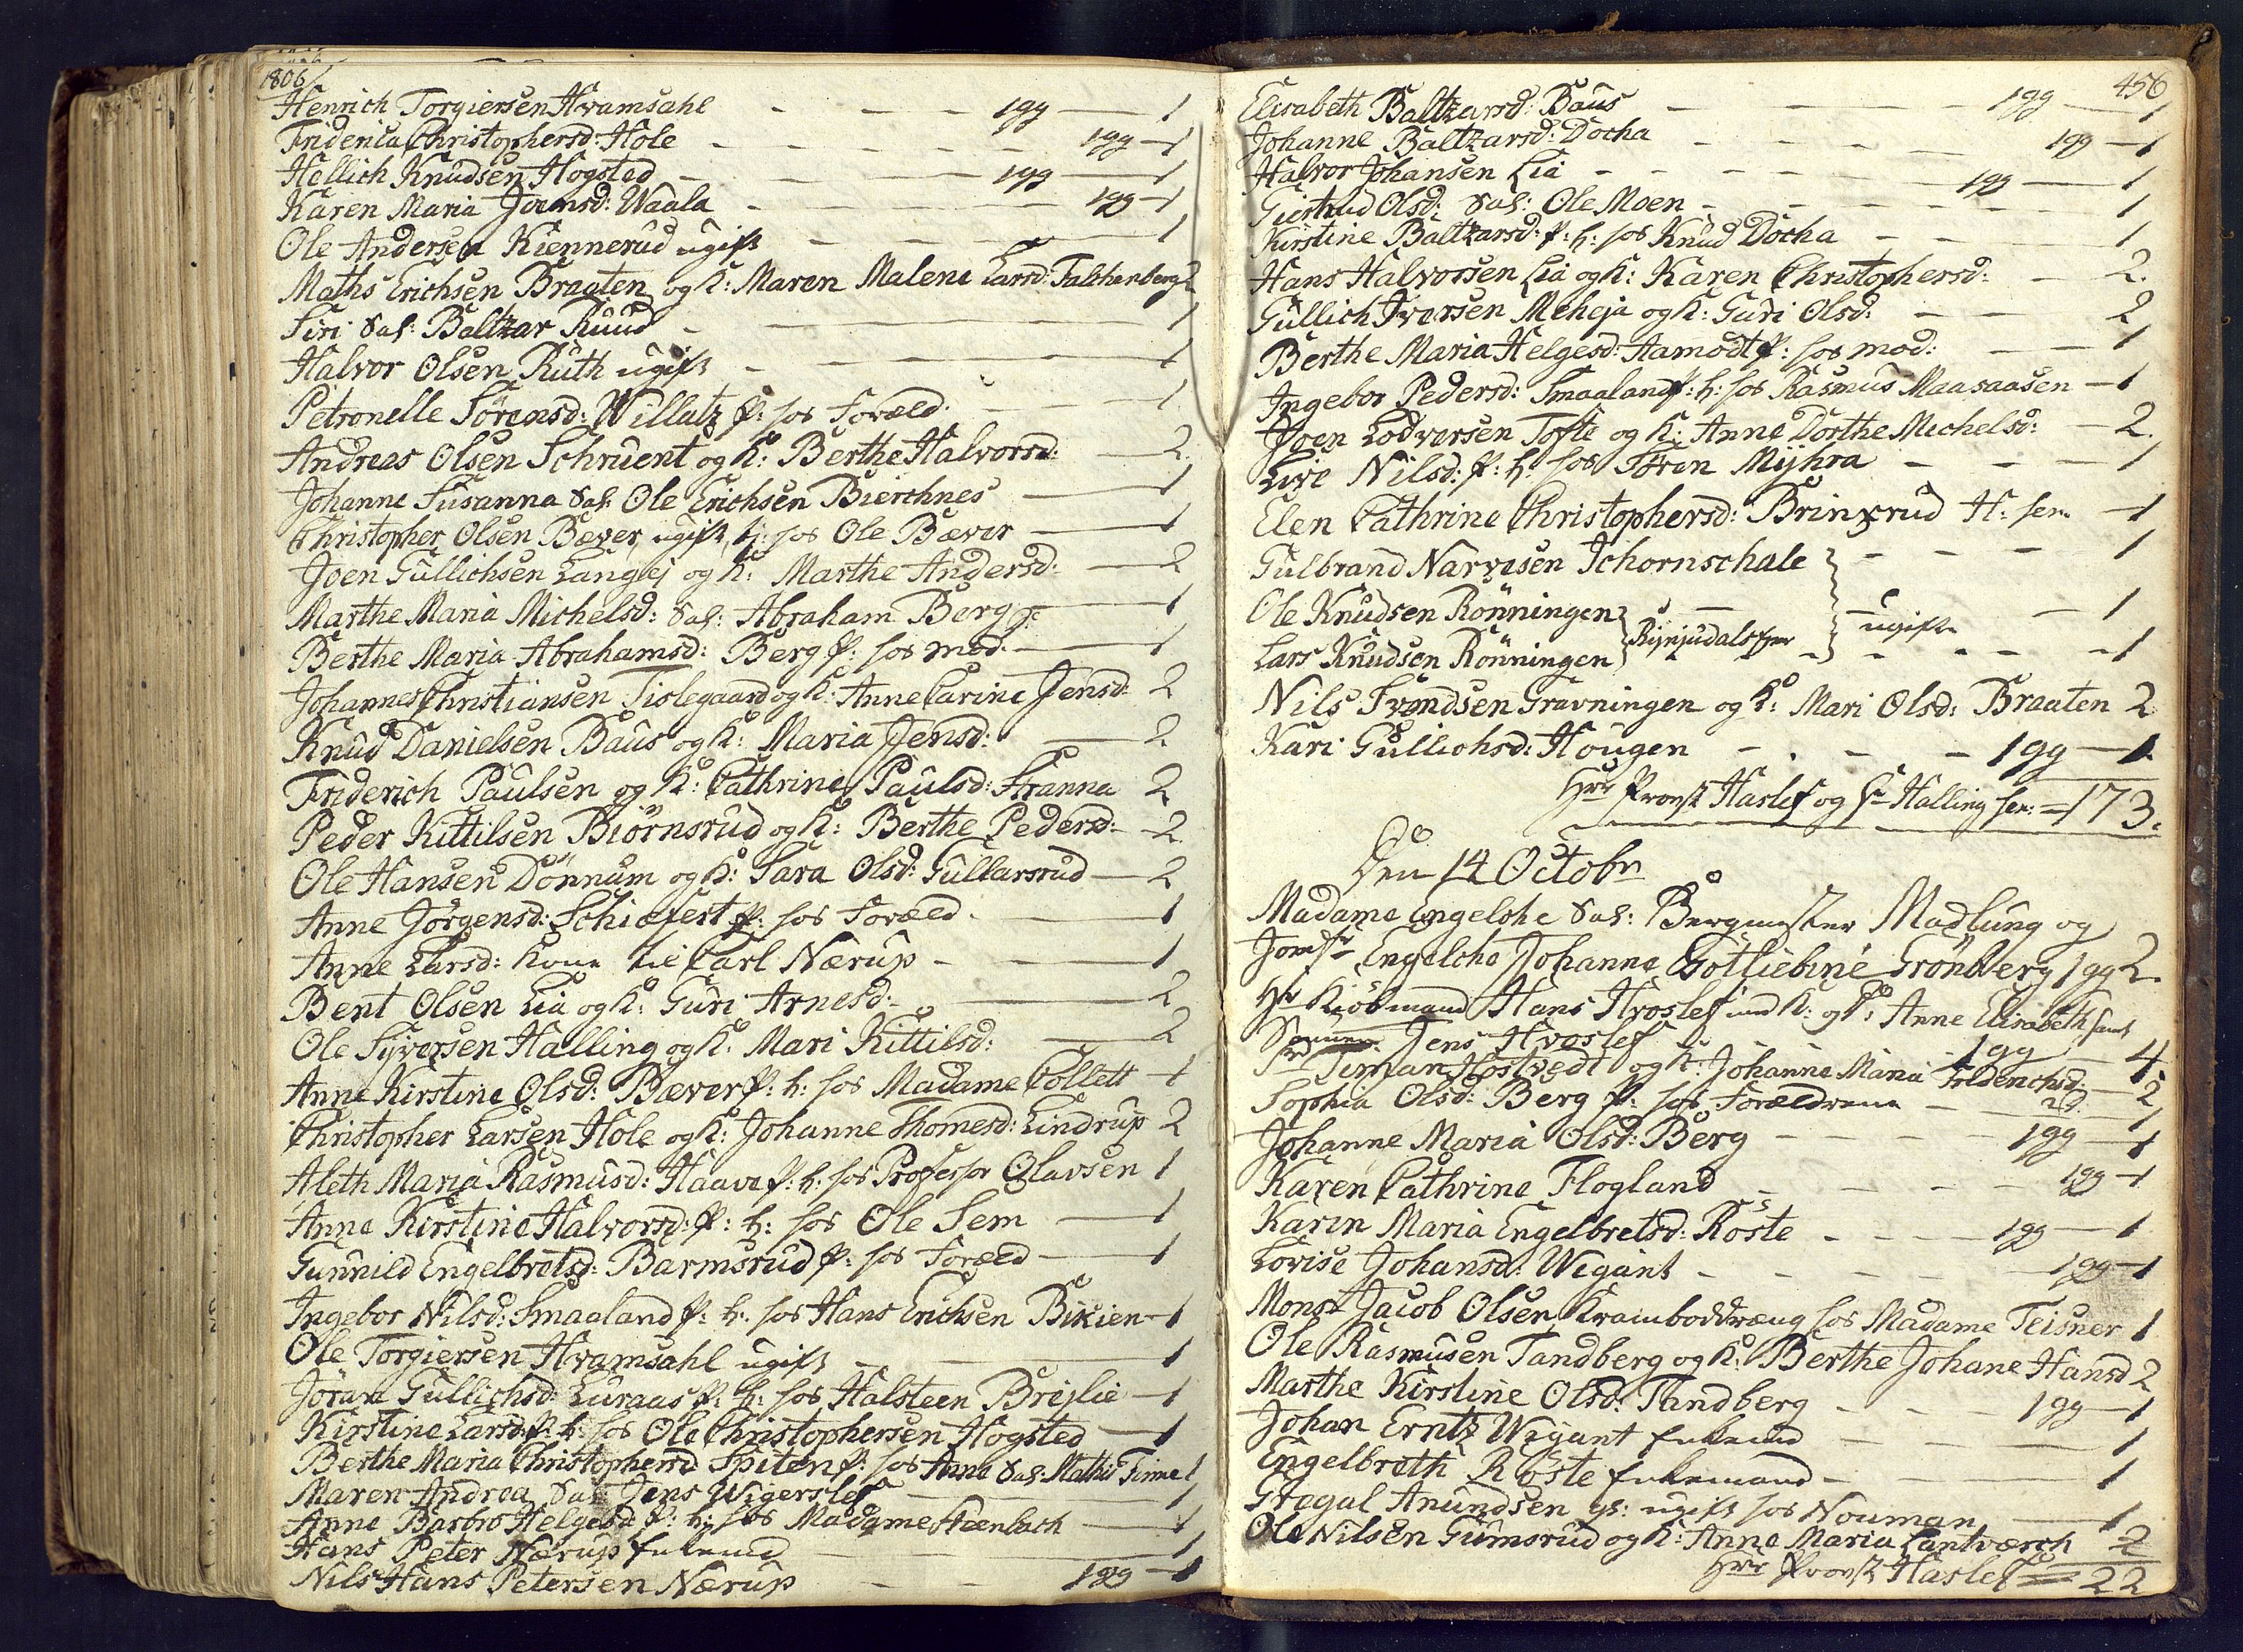 1806
Henrich Torgiersen Hvamsahl - - - 1 gg - 1
Friderica Christophersd: Hole - - - - - 1 gg - 1
Hellich Knudsen Hogsted - - - 1 gg - 1
Karen Maria Joensd: Waala - - - 1 gg - 1
Ole Andersen Kiennerud ugift - - - 1
Mathis Erichsen Braaten og K: Maren Malena Larsd: Falchenberg 2
Siri Sal: Baltzar Ruud - - - 1
Halvor Olsen Ruth ugift - - - 1
Petronelle Sörensd: Willatz p: hos Foræld. - - 1
Andreas Olsen Schruent og K: Berthe Halvorsd: - 2
Johanne Susanna Sal: Ole Erichsen Bierchnes - 1
Christopher Olsen Bæver, ugift, tj: hos Ole Bæver - 1
Joen Gullichsen Langlej og K: Marthe Andersd: - 2
Marthe Maria Michelsd: Sal: Abraham Berg - 1
Berthe Maria Abrahamsd: Berg p: hos mod. - 1
Johannes Christiansen Tislegaard og K: Anne Carine Jensd: 2
Knud Danielsen Baus og K: Maria Jensd: - 2
Friderich Paulsen og K: Cathrine Paulsd: Stranna 2
Peder Kittilsen Biörnsrud og K: Berthe Pedersd: - 2
Ole Hansen Dönnum og K: Sara Olsd: Gullarsrud - 2
Anne Jörgensd: Schiefert p: hos Foræld. - 1
Anne Larsd: Kone til Carl Nærup - - 1
Bent Olsen Lia og K: Guri Arnesd: - 2
Ole Syversen Halling og K: Mari Kittilsd: - 2
Anne Kirstine Olsd: Bæver p: t: hos Madame Collett - 1
Christopher Larsen Hole og K: Johanne Thomesd: Lindrup 2
Aleth Maria Rasmusd: Haave p: t: hos Professor Olavsen 1
Anne Kirstine Halvorsd: p: t: hos Ole Sem - 1
Gunnild Engelbretsd: Barmsrud p: hos Foræld - 1
Ingebor Nilsd: Smaaland p: t: hos Hans Erichsen Bikien - 1
Ole Torgiersen Hvamsahl ugift - - 1
Jöran Gullichsd: Luraas p: t: hos Halsteen Brejlie - 1
Kirstine Larsd: p: t: hos Ole Christophersen Hogsted - 1
Berthe Maria Christophersd Spiten p: hos Anne Sal: Mathis Finne 1
Maren Andrea Sal: Jens Wigerslef - 1
Anne Barbro Helgesd: p: t: hos Madame Steenbach - 1
Hans Peter Nærup Enkemd - 1
Nils Hans Petersen Nærup - - 1 gg - 1
456
Elisabeth Baltzarsd: Baus - - - 1 gg - 1
Johanne Baltzarsd: Docka - - - - 1 gg - 1
Halvor Johansen Lia - - - - 1 gg - 1
Giertrud Olsd: Sal: Ole Moen - - - - 1
Kirstine Baltzarsd: p: t: hos Knud Docka - - 1
Hans Halvorsen Lia og K: Karen Christophersd: - 2.
Gullich Iversen Meheja og K: Guri Olsd: - - 2
Berthe Maria Helgesd: Aamodt p: hos mod: - - 1
Ingebor Pedersd: Smaaland p: t: hos Rasmus Maasaasen - 1
Joen Lodversen Tofte og K: Anne Dorthe Michelsd: - 2.
Live Nilsd: p: t: hos Sören Mijhra - - - 1
Elen Cathrine Christophersd: Brinxrud H: sen. - 1
Gulbrand Narvesen Schornschale - - - 1
Ole Knudsen Rönningen - ugifte - 1
Lars Knudsen Rönningen - - - 1
Nils Svendsen Gravningen og K: Mari Olsd: Braaten 2
Kari Gullichsd: Hougen - - - 1 gg - 1
Hrr Provst Haslef og Hr Halling sen: = 173.
Den 14 Octobr
Madame Engelche Sal: Bergmester Madlung og
Jomfr Engelche Johanna Gotliebine Grönberg 1 gg 2.
Hr Kiöbmand Hans Hvoslef med K: og D: Anne Elisabeth samt
Sönnen Jens Hvoslef - 1 gg - 4.
Timan Hostvedt og K: Johanne Maria Fridenchsd: - 2
Sophia Olsd: Berg p: hos Forældrene - 2 g. 1
Johanne Maria Olsd: Berg - - - - 1 gg - 1
Karen Cathrine Flogland - - - - 1 gg - 1
Karen Maria Engelbretsd: Röste - - - 1 gg - 1
Lovise Johansd: Wigant - - - - 1 gg - 1
Monsr Jacob Olsen Kramboddræng hos Madame Teisner 1
Ole Rasmusen Tandberg og K: Berthe Johane Hansd 2
Marthe Kirstine Olsd: Tandberg - - 1 gg - 1
Johan Erntz Wigant Enkemd - - - 1
Engelbreth Röste Enkemand - - 1
Gregal Anundsen gs: ugift hos Nouman - 1
Ole Nilsen Gumsrud og K: Anne Maria Lantværch 2
Hrr Provst Haslef = 22